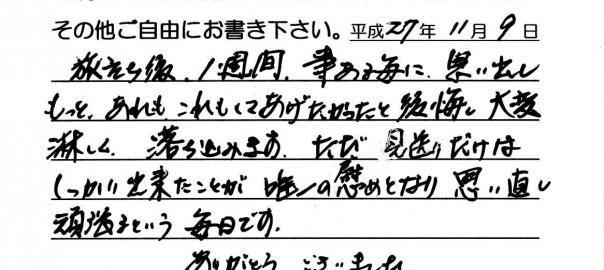 その他ご自由にお書き下さい。平成27年11月9日
旅立ち後、1週間、事ある毎に、思い出し
もっと、あれも これもしてあげたかったと 後悔し 大変
淋しく、落ち込みます。ただ 見送りだけは
しっかり出来たことが 唯一の慰めとなり 思い直し
頑張るという 毎日です。
ありがとうございました